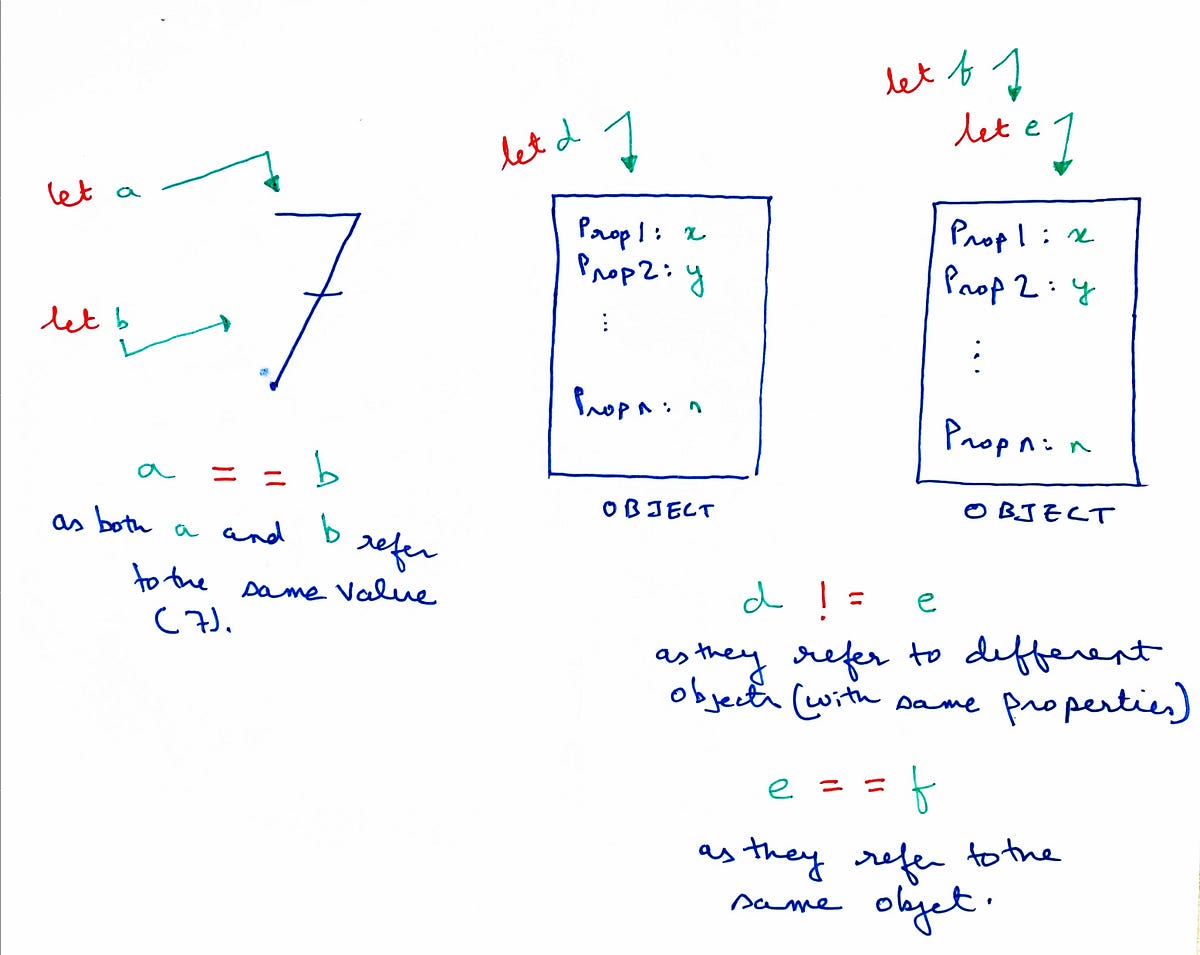 let a
let b
7
a == b
as both a and b refer
to the same value
(7).
let d
Prop1: x
Prop2: y
⋮
Propn: n
OBJECT
let f
let e
Prop1: x
Prop2: y
⋮
Propn: n
OBJECT
d != e
as they refer to different
objects (with same properties)
e == f
as they refer to the
same objet.